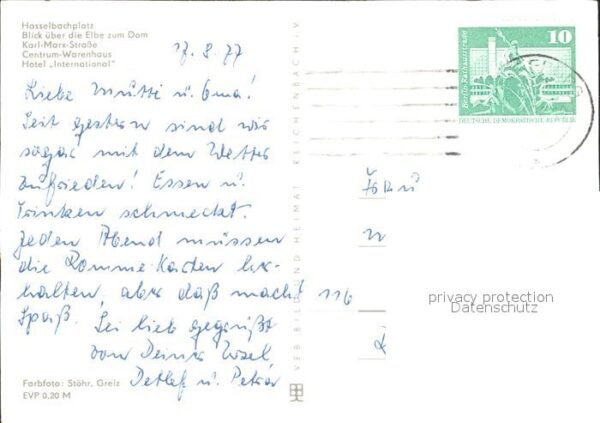 Hasselbachplatz
Blick über die Elbe zum Dom
Karl-Marx-Straße
Centrum-Warenhaus
Hotel „International"
17. 8. 77
Liebe Mutti u. Oma!
Seit gestern sind wir
sogar mit dem Wetter
zufrieden! Essen u.
Trinken schmeckt.
Jeden Abend müssen
die Romme-Karten her-
halten, aber daß macht
Spaß. Sei lieb gegrüßt
von Deiner Ursel
Detlef u. Petra
Farbfoto: Stöhr, Greiz
EVP 0,20 M
VEB BILD UND HEIMAT REICHENBACH I. V.
10
Berlin-Rathausstraße
DEUTSCHE DEMOKRATISCHE REPUBLIK
116
privacy protection
Datenschutz